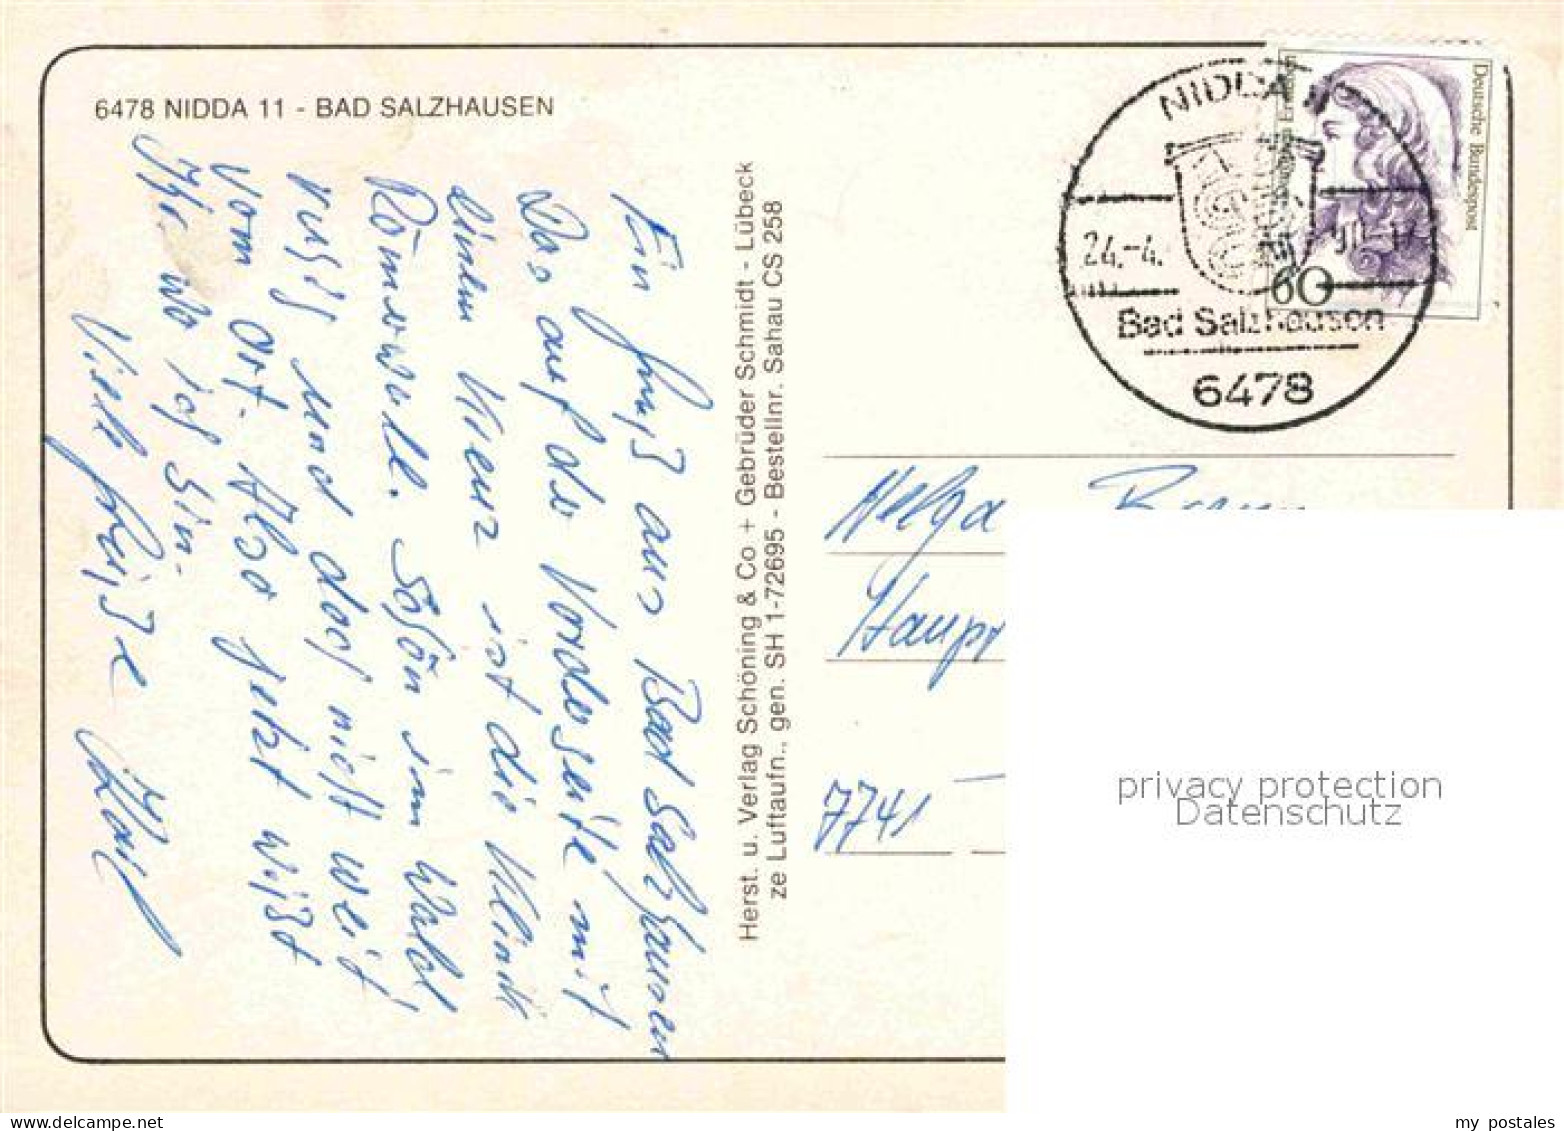 6478 NIDDA 11 - BAD SALZHAUSEN
Ein Gruß aus Bad Salzhausen
Das auf der Vorderseite mit
einem Kreuz ist die Klinik
Römerwall. Schön im Wald
ruhig und doch nicht weit
vom Ort. Also jetzt wißt
Ihr wo ich bin.
Viele Grüße
Herst. u. Verlag Schöning & Co + Gebrüder Schmidt - Lübeck
ze Luftaufn., gen. SH 1-72695 - Bestellnr. Sahau CS 258
NIDDA 11
24.-4.
Bad Salzhausen
6478
Deutsche Bundespost
60
Helga
Haupt
7741
privacy protection
Datenschutz
my postales